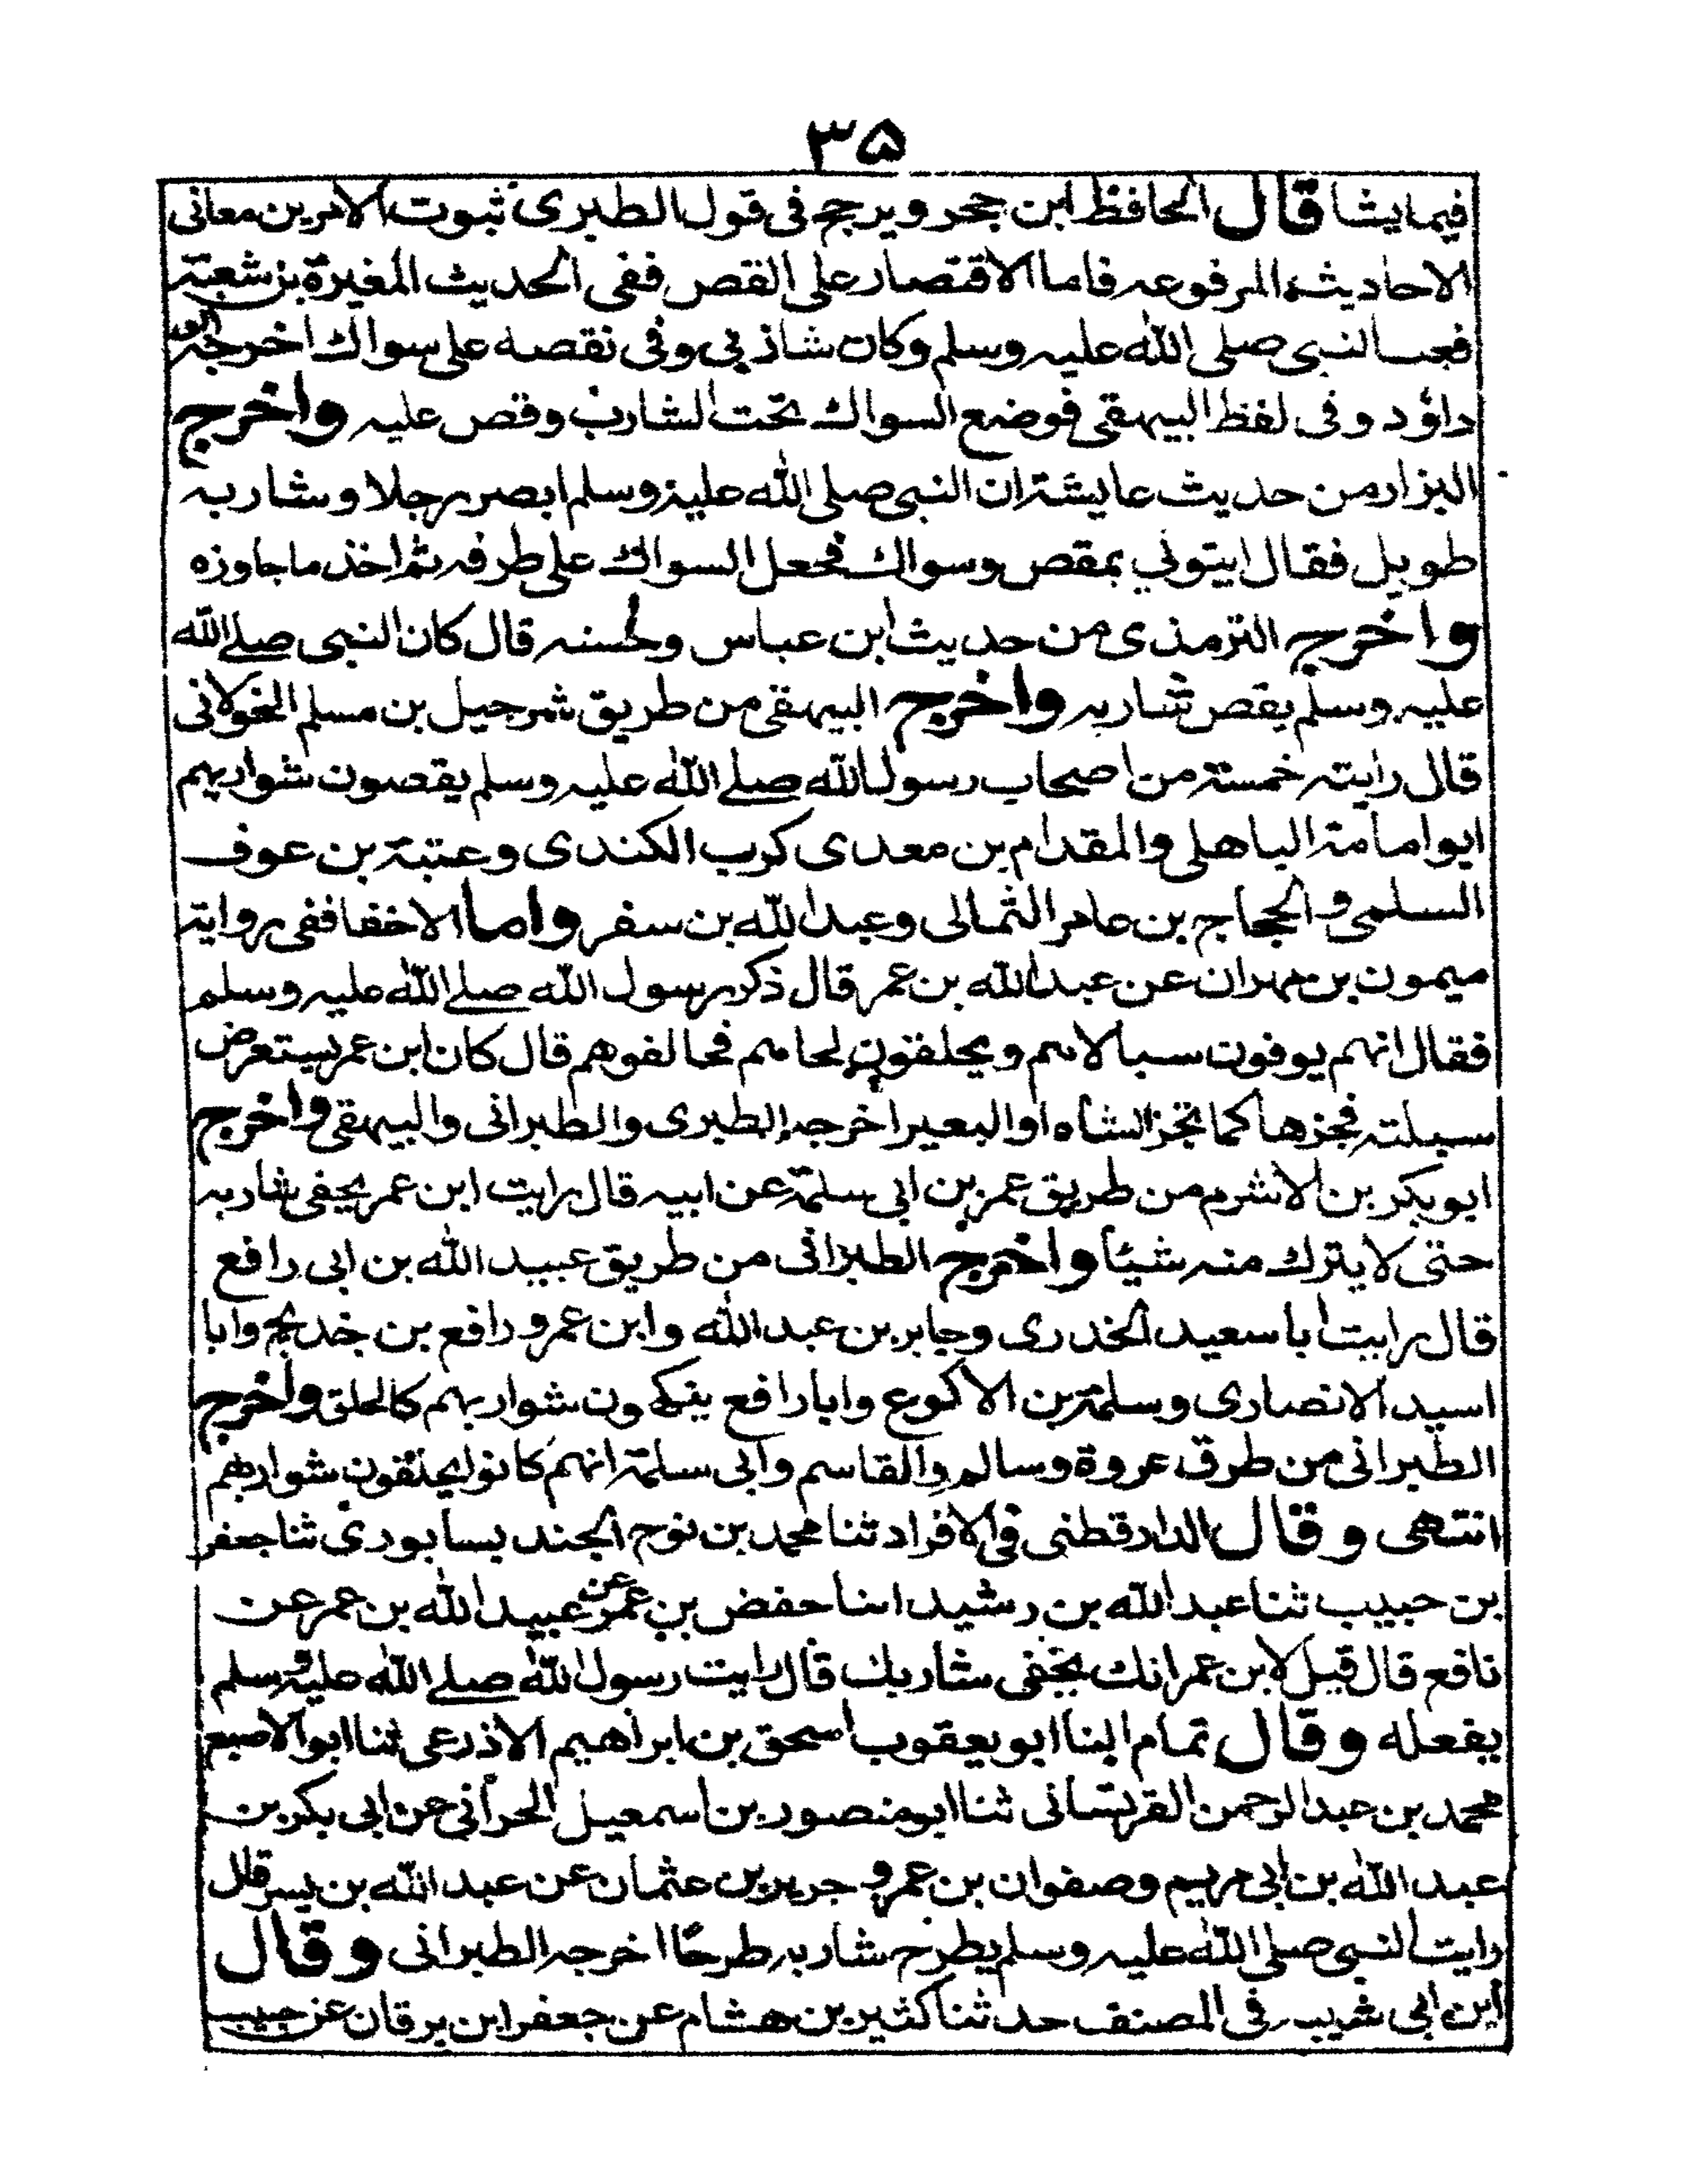 ۳۵
فيما يشا قال الحافظ ابن حجر ويرجح فى قول الطبرى ثبوت الامرين معانى
الاحاديث المرفوعه فاما الاقتصار على القص ففى الحديث المغيرة بن شعبة
النبى صلى الله عليه وسلم وكان شاربى وفى نقصه على سواك اخرجه ابو
داؤد وفى لفظ البيهقى فوضع السواك تحت الشارب وقص عليه واخرج
البزار من حديث عايشة ان النبى صلى الله عليه وسلم ابصر رجلا وشاربه
طويل فقال ايتونى بمقص وسواك فجعل السواك على طرفه ثم اخذ ما جاوزه
واخرج الترمذى من حديث ابن عباس وحسنه قال كان النبى صلے الله
عليه وسلم يقص شاربه واخرج البيهقى من طريق شرحبيل بن مسلم الخولانى
قال رايت خمسة من اصحاب رسول الله صلے الله عليه وسلم يقصون شواربهم
ابو امامة الباهلى والمقدام بن معدى كرب الكندى وعتبة بن عوف
السلمى والحجاج بن عامر الثمالى وعبد الله بن سفر واما الاخفا ففى رواية
ميمون بن مهران عن عبد الله بن عمر قال ذكر رسول الله صلے الله عليه وسلم
فقال انهم يوفون سبالاسم ويحلقون لحاهم فخالفوهم قال كان ابن عمر يستعرض
سبلته فيجزها كما تجز الشاه او البعير اخرجه الطبرى والطبرانى والبيهقى واخرج
ابو بكر بن الاشرم من طريق عمر بن ابى سلمة عن ابيه قال رايت ابن عمر يحفى شاربه
حتى لا يترك منه شيئا واخرج الطبرانى من طريق عبيد الله بن ابى رافع
قال رايت ابا سعيد الخدرى وجابر بن عبد الله وابن عمر ورافع بن خديج وابا
اسيد الانصارى وسلمة بن الاكوع وابا رافع ينهكون شواربهم كالحلق واخرج
الطبرانى من طرق عروة وسالم والقاسم وابى سلمة انهم كانوا يحلقون شواربهم
انتهى وقال الدارقطنى فى الافراد ثنا محمد بن نوح الجند يسابورى ثنا جعفر
بن حبيب ثنا عبد الله بن رشيد انبا حفض بن عمر عن عبيد الله بن عمر عن
نافع قال قيل لابن عمر انك تحفى شاربك قال رايت رسول الله صلے الله عليه وسلم
يفعله وقال تمام ابنا ابو يعقوب اسحق بن ابراهيم الاذرعى ثنا ابو الاصبع
محمد بن عبد الرحمن القرتسانى ثنا ابو منصور بن اسمعيل الحرانى عن ابى بكر بن
عبد الله بن ابى مريم وصفوان بن عمرو جرير بن عثمان عن عبد الله بن يسر قال
رايت النبى صلى الله عليه وسلم يطرح شاربه طرحًا اخرجه الطبرانى وقال
ابن ابى شيبه فى المصنف حدثنا كثير بن هشام عن جعفر ابن برقان عن حبيب